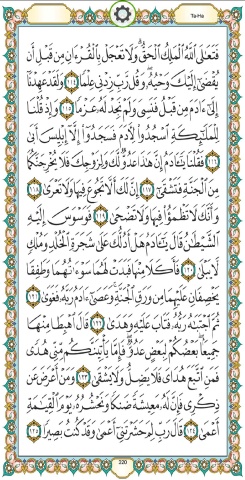 Ta-Ha
فَتَعَٰلَى ٱللَّهُ ٱلْمَلِكُ ٱلْحَقُّ ۗ وَلَا تَعْجَلْ بِٱلْقُرْءَانِ مِن قَبْلِ أَن
يُقْضَىٰٓ إِلَيْكَ وَحْيُهُۥ ۖ وَقُل رَّبِّ زِدْنِى عِلْمًا ١١٤ وَلَقَدْ عَهِدْنَآ
إِلَىٰٓ ءَادَمَ مِن قَبْلُ فَنَسِىَ وَلَمْ نَجِدْ لَهُۥ عَزْمًا ١١٥ وَإِذْ قُلْنَا
لِلْمَلَٰٓئِكَةِ ٱسْجُدُوا۟ لِءَادَمَ فَسَجَدُوٓا۟ إِلَّآ إِبْلِيسَ أَبَىٰ
١١٦ فَقُلْنَا يَٰٓـَٔادَمُ إِنَّ هَٰذَا عَدُوٌّ لَّكَ وَلِزَوْجِكَ فَلَا يُخْرِجَنَّكُمَا
مِنَ ٱلْجَنَّةِ فَتَشْقَىٰٓ ١١٧ إِنَّ لَكَ أَلَّا تَجُوعَ فِيهَا وَلَا تَعْرَىٰ ١١٨
وَأَنَّكَ لَا تَظْمَؤُا۟ فِيهَا وَلَا تَضْحَىٰ ١١٩ فَوَسْوَسَ إِلَيْهِ
ٱلشَّيْطَٰنُ قَالَ يَٰٓـَٔادَمُ هَلْ أَدُلُّكَ عَلَىٰ شَجَرَةِ ٱلْخُلْدِ وَمُلْكٍ
لَّا يَبْلَىٰ ١٢٠ فَأَكَلَا مِنْهَا فَبَدَتْ لَهُمَا سَوْءَٰتُهُمَا وَطَفِقَا
يَخْصِفَانِ عَلَيْهِمَا مِن وَرَقِ ٱلْجَنَّةِ ۚ وَعَصَىٰٓ ءَادَمُ رَبَّهُۥ فَغَوَىٰ ١٢١
ثُمَّ ٱجْتَبَٰهُ رَبُّهُۥ فَتَابَ عَلَيْهِ وَهَدَىٰ ١٢٢ قَالَ ٱهْبِطَا مِنْهَا
جَمِيعًۢا ۖ بَعْضُكُمْ لِبَعْضٍ عَدُوٌّ ۖ فَإِمَّا يَأْتِيَنَّكُم مِّنِّى هُدًى
فَمَنِ ٱتَّبَعَ هُدَاىَ فَلَا يَضِلُّ وَلَا يَشْقَىٰ ١٢٣ وَمَنْ أَعْرَضَ عَن
ذِكْرِى فَإِنَّ لَهُۥ مَعِيشَةً ضَنكًا وَنَحْشُرُهُۥ يَوْمَ ٱلْقِيَٰمَةِ
أَعْمَىٰ ١٢٤ قَالَ رَبِّ لِمَ حَشَرْتَنِىٓ أَعْمَىٰ وَقَدْ كُنتُ بَصِيرًا ١٢٥
220